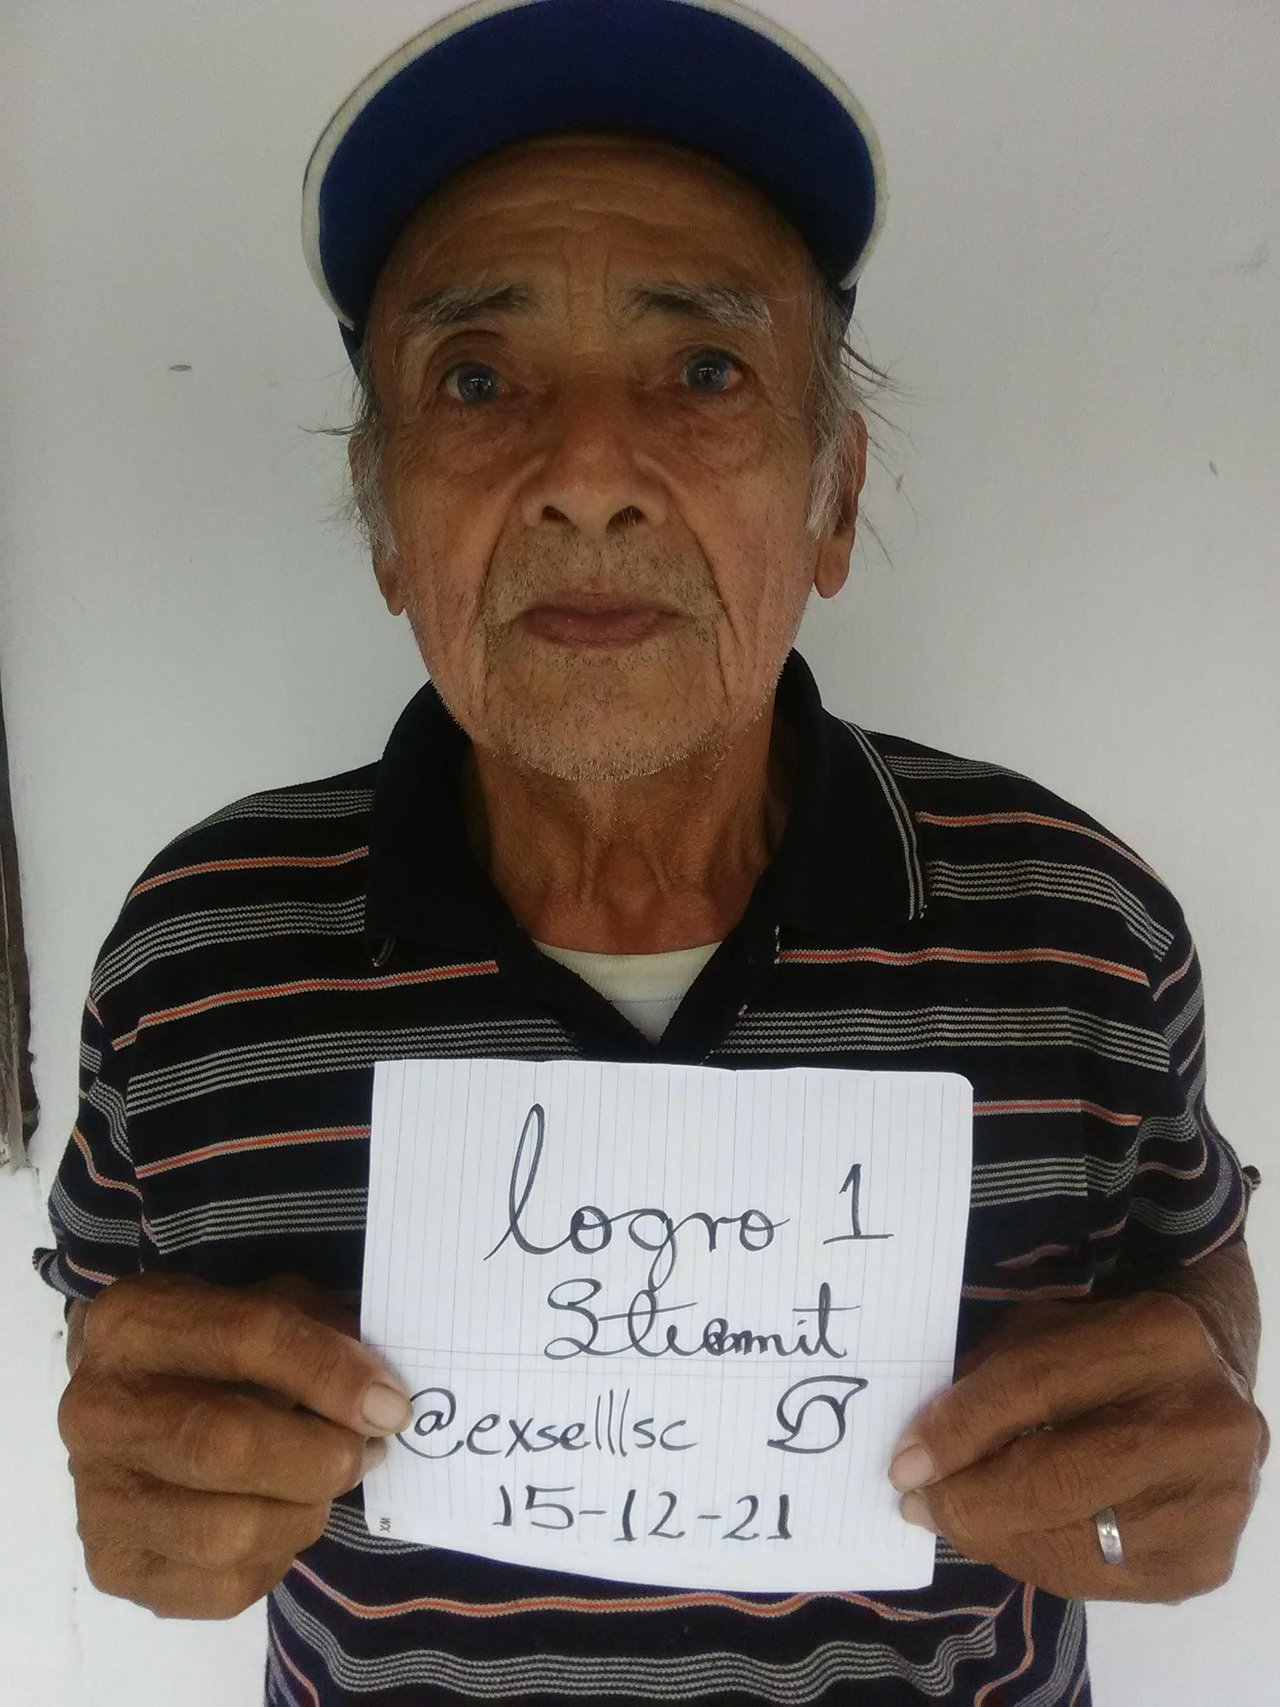 logro 1
Steemit
@exselllsc
15-12-21